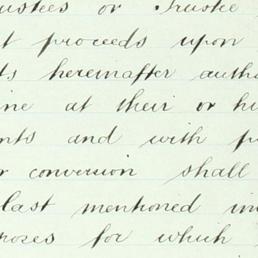 ustees or Trustee
t proceeds upon
ts hereinafter autho
ine at their or hi
nts and with p
r conversion shall
last mentioned in
poses for which